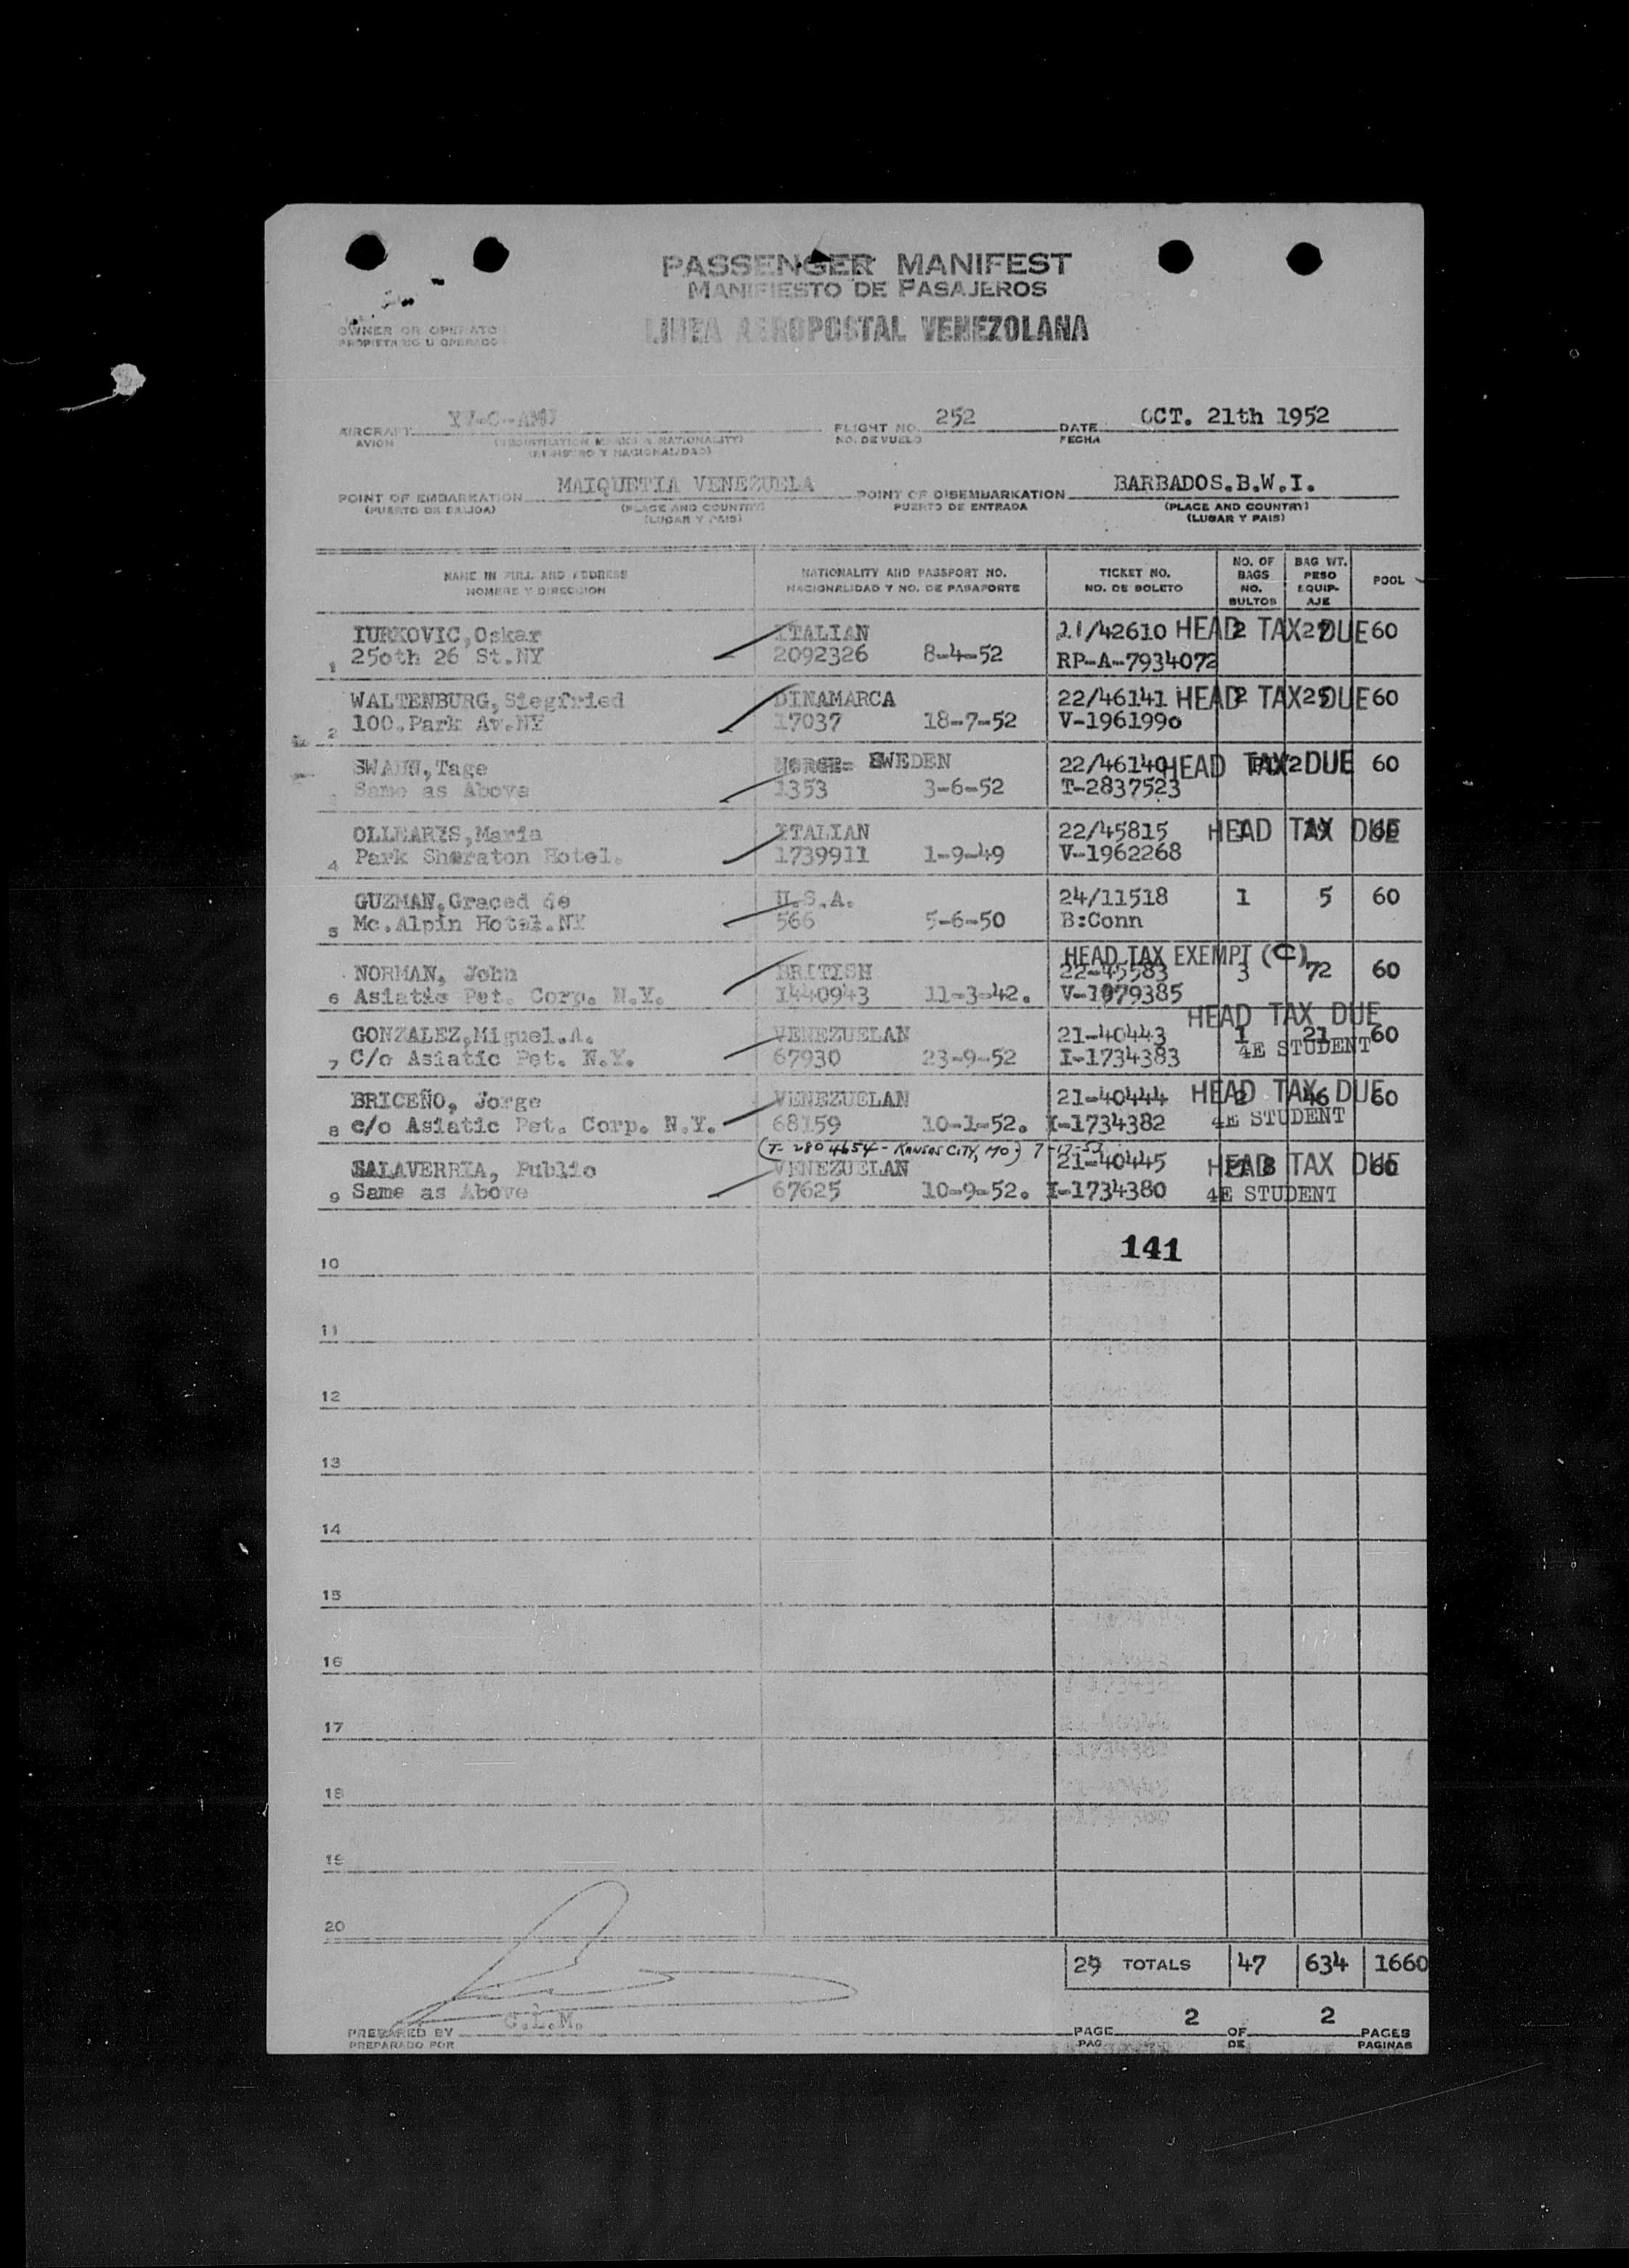 PASSENGER MANIFEST
MANIFIESTO DE PASAJEROS
OWNER OR OPERATOR
PROPIETARIO U OPERADOR
LINEA AEROPOSTAL VENEZOLANA
AIRCRAFT YV-C-AMU FLIGHT NO. 252 DATE OCT. 21th 1952
AVION (REGISTRATION MARKS & NATIONALITY) NO. DE VUELO FECHA
(REGISTRO Y NACIONALIDAD)
POINT OF EMBARKATION MAIQUETIA VENEZUELA POINT OF DISEMBARKATION BARBADOS.B.W.I.
(PUERTO DE SALIDA) (PLACE AND COUNTRY) PUERTO DE ENTRADA (PLACE AND COUNTRY)
(LUGAR Y PAIS) (LUGAR Y PAIS)
NAME IN FULL AND ADDRESS NATIONALITY AND PASSPORT NO. TICKET NO. NO. OF BAGS BAG WT. POOL
NOMBRE Y DIRECCION NACIONALIDAD Y NO. DE PASAPORTE NO. DE BOLETO NO. BULTOS PESO EQUIP-AJE
IURKOVIC,Oskar ITALIAN 21/42610 HEAD TAX DUE 2 60
1 250th 26 St.NY 2092326 8-4-52 RP-A-7934072
WALTENBURG,Siegfried DINAMARCA 22/46141 HEAD TAX DUE 2 25 60
2 100.Park Av.NY 17037 18-7-52 V-1961990
SWAHN,Tage SWEDEN 22/46140 HEAD TAX DUE 60
Same as Above 1353 3-6-52 T-2837523
OLLEARIS,Maria ITALIAN 22/45815 HEAD TAX DUE 60
4 Park Sheraton Hotel. 1739911 1-9-49 V-1962268
GUZMAN,Graced de U.S.A. 24/11518 1 5 60
5 Mc.Alpin Hotel.NY 566 5-6-50 B:Conn
HEAD TAX EXEMPT (C)
NORMAN, John BRITISH 22-45583 3 72 60
6 Asiatic Pet. Corp. N.Y. 1440943 11-3-42. V-1979385
HEAD TAX DUE
GONZALEZ,Miguel.A. VENEZUELAN 21-40443 1 21 60
7 C/o Asiatic Pet. N.Y. 67930 23-9-52 I-1734383 4E STUDENT
BRICEÑO, Jorge VENEZUELAN 21-40444 HEAD TAX DUE 2 46 60
8 c/o Asiatic Pet. Corp. N.Y. 68159 10-1-52. I-1734382 4E STUDENT
(T-2804654 - KANSAS CITY, MO.)
SALAVERRIA, Publio VENEZUELAN 21-40445 HEAD TAX DUE 60
9 Same as Above 67625 10-9-52. I-1734380 4E STUDENT
141
10
11
12
13
14
15
16
17
18
19
20
29 TOTALS 47 634 1660
PREPARED BY C.L.M. PAGE 2 OF 2 PAGES
PREPARADO POR PAG. DE PAGINAS